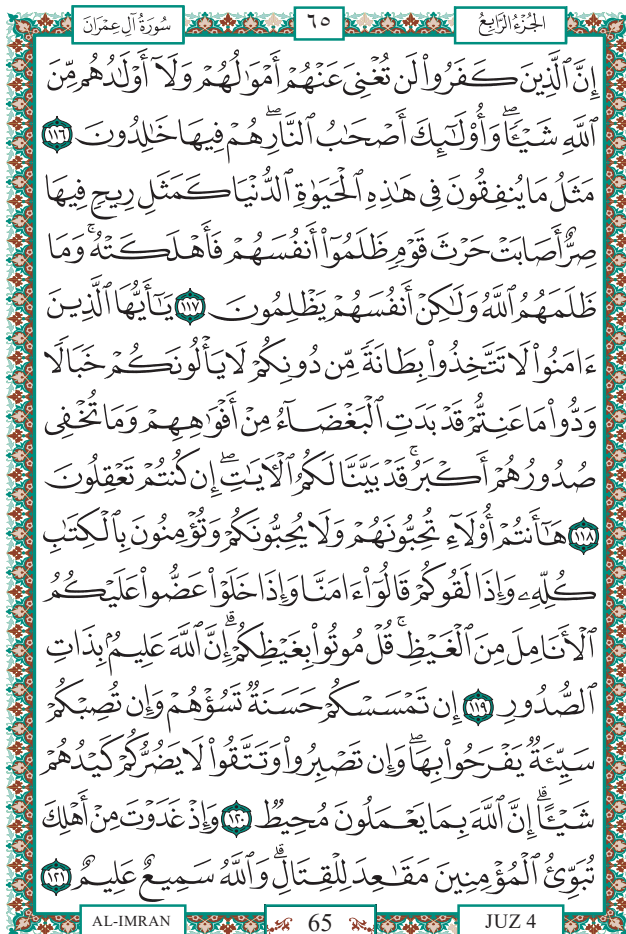 سُورَةُ آلِ عِمْرَانَ ٦٥ الجُزْءُ الرَّابِعُ
إِنَّ ٱلَّذِينَ كَفَرُوا۟ لَن تُغْنِىَ عَنْهُمْ أَمْوَٰلُهُمْ وَلَآ أَوْلَـٰدُهُم مِّنَ
ٱللَّهِ شَيْـًٔا ۖ وَأُو۟لَـٰٓئِكَ أَصْحَـٰبُ ٱلنَّارِ ۖ هُمْ فِيهَا خَـٰلِدُونَ ١١٦
مَثَلُ مَا يُنفِقُونَ فِى هَـٰذِهِ ٱلْحَيَوٰةِ ٱلدُّنْيَا كَمَثَلِ رِيحٍ فِيهَا
صِرٌّ أَصَابَتْ حَرْثَ قَوْمٍ ظَلَمُوٓا۟ أَنفُسَهُمْ فَأَهْلَكَتْهُ ۚ وَمَا
ظَلَمَهُمُ ٱللَّهُ وَلَـٰكِنْ أَنفُسَهُمْ يَظْلِمُونَ ١١٧ يَـٰٓأَيُّهَا ٱلَّذِينَ
ءَامَنُوا۟ لَا تَتَّخِذُوا۟ بِطَانَةً مِّن دُونِكُمْ لَا يَأْلُونَكُمْ خَبَالًا
وَدُّوا۟ مَا عَنِتُّمْ قَدْ بَدَتِ ٱلْبَغْضَآءُ مِنْ أَفْوَٰهِهِمْ وَمَا تُخْفِى
صُدُورُهُمْ أَكْبَرُ ۚ قَدْ بَيَّنَّا لَكُمُ ٱلْـَٔايَـٰتِ ۖ إِن كُنتُمْ تَعْقِلُونَ
١١٨ هَـٰٓأَنتُمْ أُو۟لَآءِ تُحِبُّونَهُمْ وَلَا يُحِبُّونَكُمْ وَتُؤْمِنُونَ بِٱلْكِتَـٰبِ
كُلِّهِۦ وَإِذَا لَقُوكُمْ قَالُوٓا۟ ءَامَنَّا وَإِذَا خَلَوْا۟ عَضُّوا۟ عَلَيْكُمُ
ٱلْأَنَامِلَ مِنَ ٱلْغَيْظِ ۚ قُلْ مُوتُوا۟ بِغَيْظِكُمْ ۗ إِنَّ ٱللَّهَ عَلِيمٌۢ بِذَاتِ
ٱلصُّدُورِ ١١٩ إِن تَمْسَسْكُمْ حَسَنَةٌ تَسُؤْهُمْ وَإِن تُصِبْكُمْ
سَيِّئَةٌ يَفْرَحُوا۟ بِهَا ۖ وَإِن تَصْبِرُوا۟ وَتَتَّقُوا۟ لَا يَضُرُّكُمْ كَيْدُهُمْ
شَيْـًٔا ۗ إِنَّ ٱللَّهَ بِمَا يَعْمَلُونَ مُحِيطٌ ١٢٠ وَإِذْ غَدَوْتَ مِنْ أَهْلِكَ
تُبَوِّئُ ٱلْمُؤْمِنِينَ مَقَـٰعِدَ لِلْقِتَالِ ۗ وَٱللَّهُ سَمِيعٌ عَلِيمٌ ١٢١
AL-IMRAN 65 JUZ 4